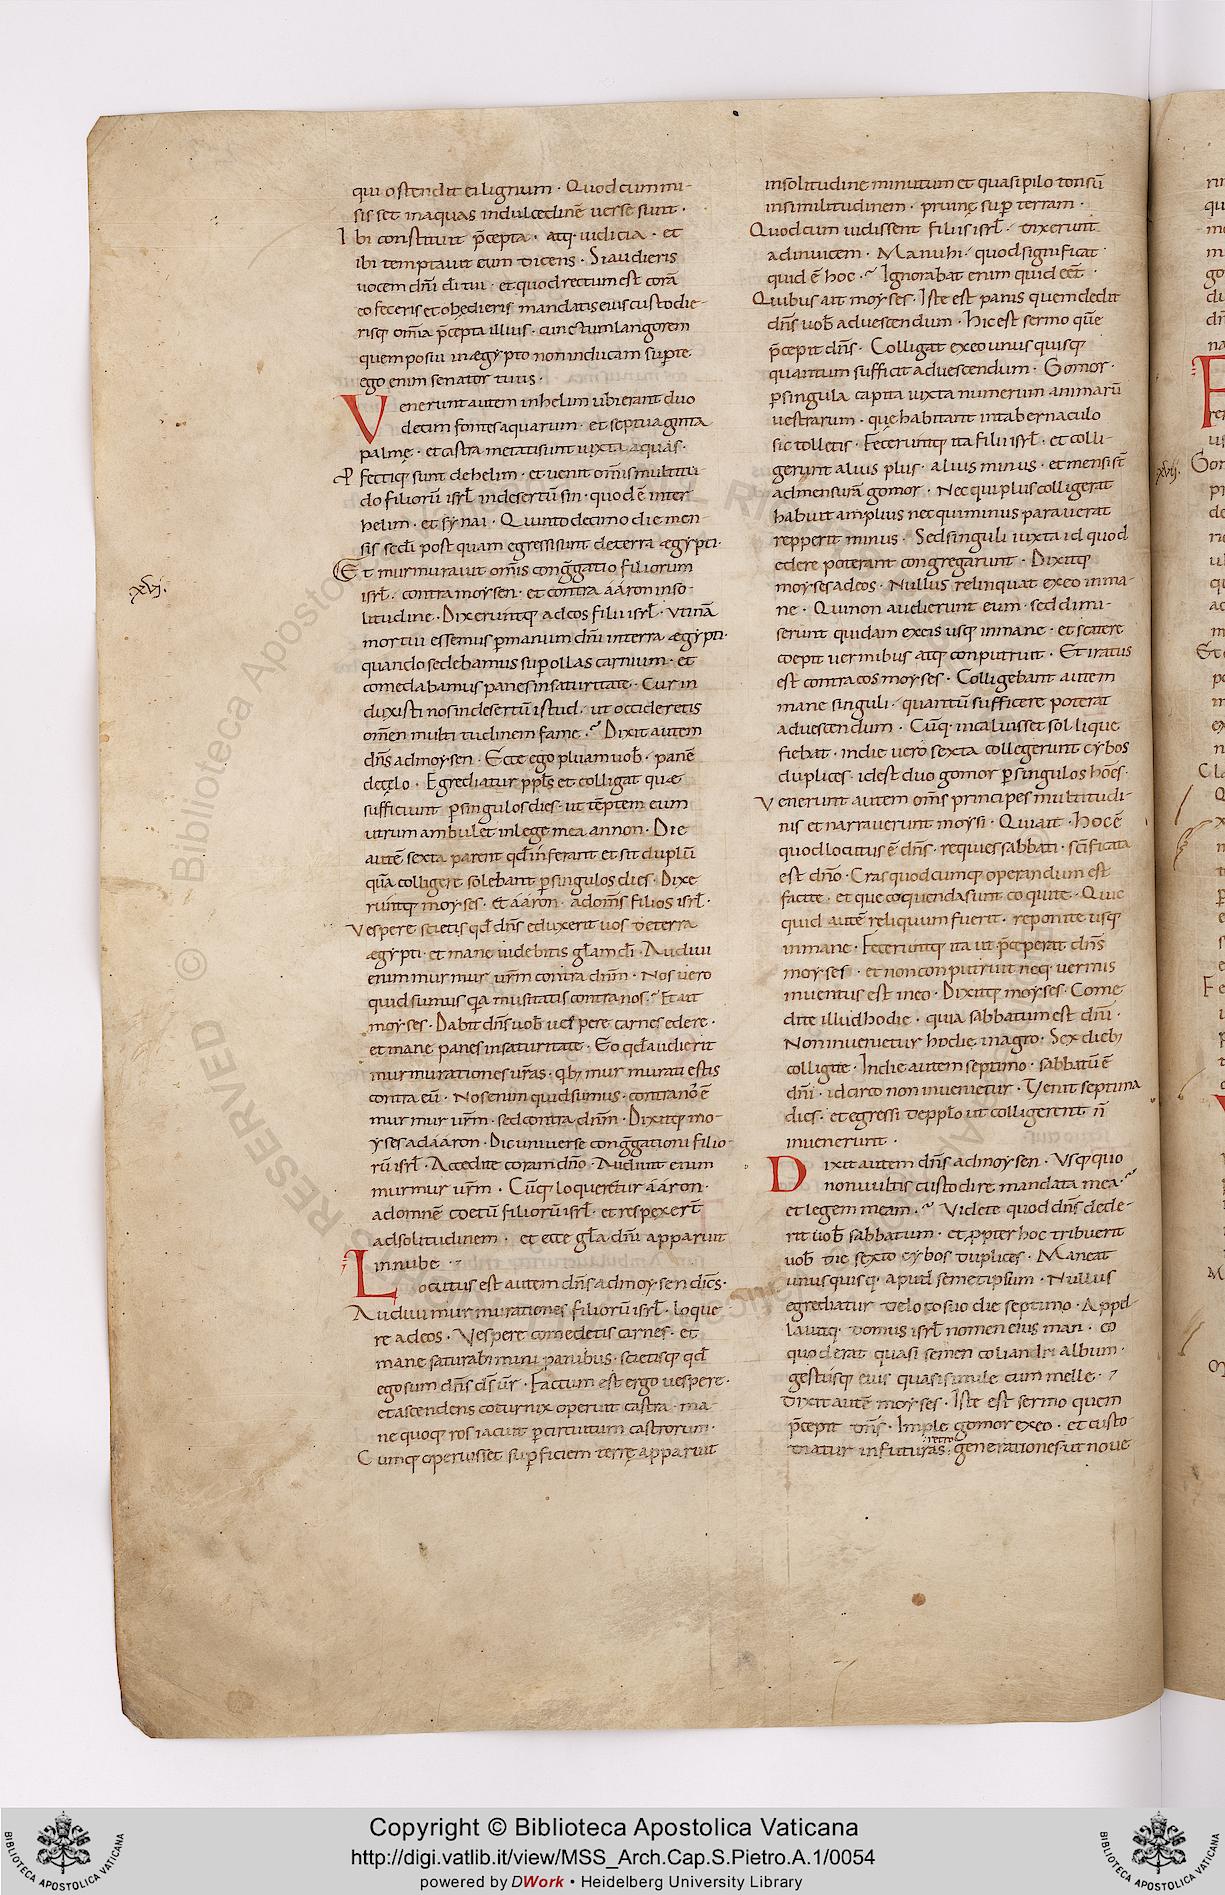 qui ostendit ei lignum · Quod cum mi-
sisset in aquas in dulcedinē verse sunt ·
Ibi constituit p̄cepta · atq· iudicia · et
ibi temptavit eum dicens · Si audieris
vocem dn̄i dī tui · et quod rectum est corā
eo feceris et obędieris mandatis eius custodie-
risq· om̄ia p̄cepta illius · cunctum langorem
quem posui in ægypto non inducam sup te
ego enim senator tuus ·
Venerunt autem in helim ubi erant duo
decim fontes aquarum · et septuaginta
palmę · et castra metati sunt iuxta aquas ·
Pfectiq· sunt de helim · et venit om̄is multitu
do filiorū isrl̄ in desertū sin · quod ē inter
helim · et synai · Quinto decimo die men
sis scd̄i post quam egressi sunt de terra ægypti ·
xvj.
Et murmuravit om̄is conḡgatio filiorum
isrl̄ · contra moysen · et contra ááron in so-
litudine · Dixeruntq· ad eos filii isrl̄ · Utinā
mortui essemus p manum dn̄i in terra ægypti ·
quando sedebamus sup ollas carnium · et
comedabamus panes in saturitate · Cur in
duxisti nos in desertū istud · ut occideretis
om̄em multitudinem fame · Dixit autem
dn̄s ad moysen · Ecce ego pluam vob̄ · panē
de cęlo · Egrediatur ppl̄s et colligat quæ
sufficiunt p singulos dies · ut tēptem eum
utrum ambulet in lege mea an non · Die
autē sexta parent qd̄ inferant et sit duplū
quā colligere solebant p singulos dies · Dixe
runtq· moyses · et ááron · ad om̄s filios isrl̄ ·
Vespere scietis qd̄ dn̄s eduxerit vos de terra
ægypti · et mane videbitis gl̄am dn̄i · Audivi
enim murmur vr̄m contra dn̄m · Nos vero
quid sumus qa musitatis contra nos · Et ait
moyses · Dabit dn̄s vob̄ vespere carnes edere ·
et mane panes in saturitate · Eo qd̄ audierit
murmurationes vr̄as · qbi murmurati estis
contra eū · Nos enim quid sumus · contra nos ē
murmur vr̄m · sed contra dn̄m · Dixitq· mo-
yses ad ááron · Dic universe conḡgationi filio-
rū isrl̄ · Accedite coram dn̄o · Audivit enim
murmur vr̄m · Cūq· loqueretur ááron ·
ad omnē coetū filiorū isrl̄ · et respexerūt
ad solitudinem · et ecce gl̄a dn̄i apparuit
in nube ·
Locutus est autem dn̄s ad moysen dicēs ·
Audivi murmurationes filiorū isrl̄ · loque
re ad eos · Vespere comedetis carnes · et
mane saturabimini panibus · scietisq· qd̄
ego sum dn̄s ds̄ vr̄ · Factum est ergo vespere ·
et ascendens coturnix operuit castra · ma-
ne quoq· ros iacuit p circuitum castrorum ·
Cumq· operuisset supficiem terrę apparuit
in solitudine minutum et quasi pilo tonsū
in similitudinem · pruinę sup terram ·
Quod cum vidissent filii isrl̄ · dixerunt
ad invicem · Manuhi · quod significat
quid ē hoc · Ignorabat enim quid eēt ·
Quibus ait moyses · Iste est panis quem dedit
dn̄s vob̄ ad vescendum · Hic est sermo quē
p̄cepit dn̄s · Colligat ex eo unus quisq·
quantum sufficit ad vescendum · Gomor ·
p singula capita iuxta numerum animarū
vestrarum · que habitant in tabernaculo
sic tolletis · Feceruntq· ita filii isrl̄ · et colli-
gerunt alius plus · alius minus · et mensi st̄
ad mensurā gomor · Nec qui plus colligerat
habuit amplius nec qui minus paraverat
repperit minus · Sed singuli iuxta id quod
edere poterant congregarunt · Dixitq·
moyses ad eos · Nullus relinquat ex eo in ma-
ne · Qui non audierunt eum · sed dimi-
serunt quidam ex eis usq· in mane · et scatere
coepit vermibus atq· conputruit · Et iratus
est contra eos moyses · Colligebant autem
mane singuli · quantū sufficere poterat
ad vescendum · Cūq· incaluisset sol · lique
fiebat · in die vero sexta collegerunt cybos
duplices · id est duo gomor p singulos hōes ·
Venerunt autem om̄s principes multitudi-
nis et narraverunt moysi · Qui ait · Hoc ē
quod locutus ē dn̄s · requies sabbati · sc̄ificata
est dn̄o · Cras quodcumq· operandum est
facite · et que coquenda sunt coquite · Quic
quid autē reliquum fuerit · reponite usq·
in mane · Feceruntq· ita ut p̄ceperat dn̄s
moyses · et non conputruit neq· vermis
inventus est in eo · Dixitq· moyses · Come
dite illud hodie · quia sabbatum est dn̄i ·
Non invenietur hodie in agro · Sex diebȝ
colligite · In die autem septimo · sabbatū ē
dn̄i · idcirco non invenietur · Venit septima
dies · et egressi de pplo ut colligerent n̄
invenerunt ·
Dixit autem dn̄s ad moysen · Usq· quo
non vultis custodire mandata mea ·
et legem meam · Videte quod dn̄s dede-
rit vob̄ sabbatum · et ppter hoc tribuerit
vob̄ die sexto cybos duplices · Maneat
unus quisq· apud semetipsum · Nullus
egrediatur de loco suo die septimo · Appel-
lavitq· domus isrl̄ nomen eius man · eo
quod erat quasi semen coliandri album ·
gestusq· eius quasi simile cum melle ·
Dixit autē moyses · Iste est sermo quem
p̄cepit dn̄s · Imple gomor ex eo · et custo
diatur in futuras retro generationes ut nove
xvij.
Copyright © Biblioteca Apostolica Vaticana
http://digi.vatlib.it/view/MSS_Arch.Cap.S.Pietro.A.1/0054
powered by DWork • Heidelberg University Library
BIBLIOTECA APOSTOLICA VATICANA
BIBLIOTECA APOSTOLICA VATICANA